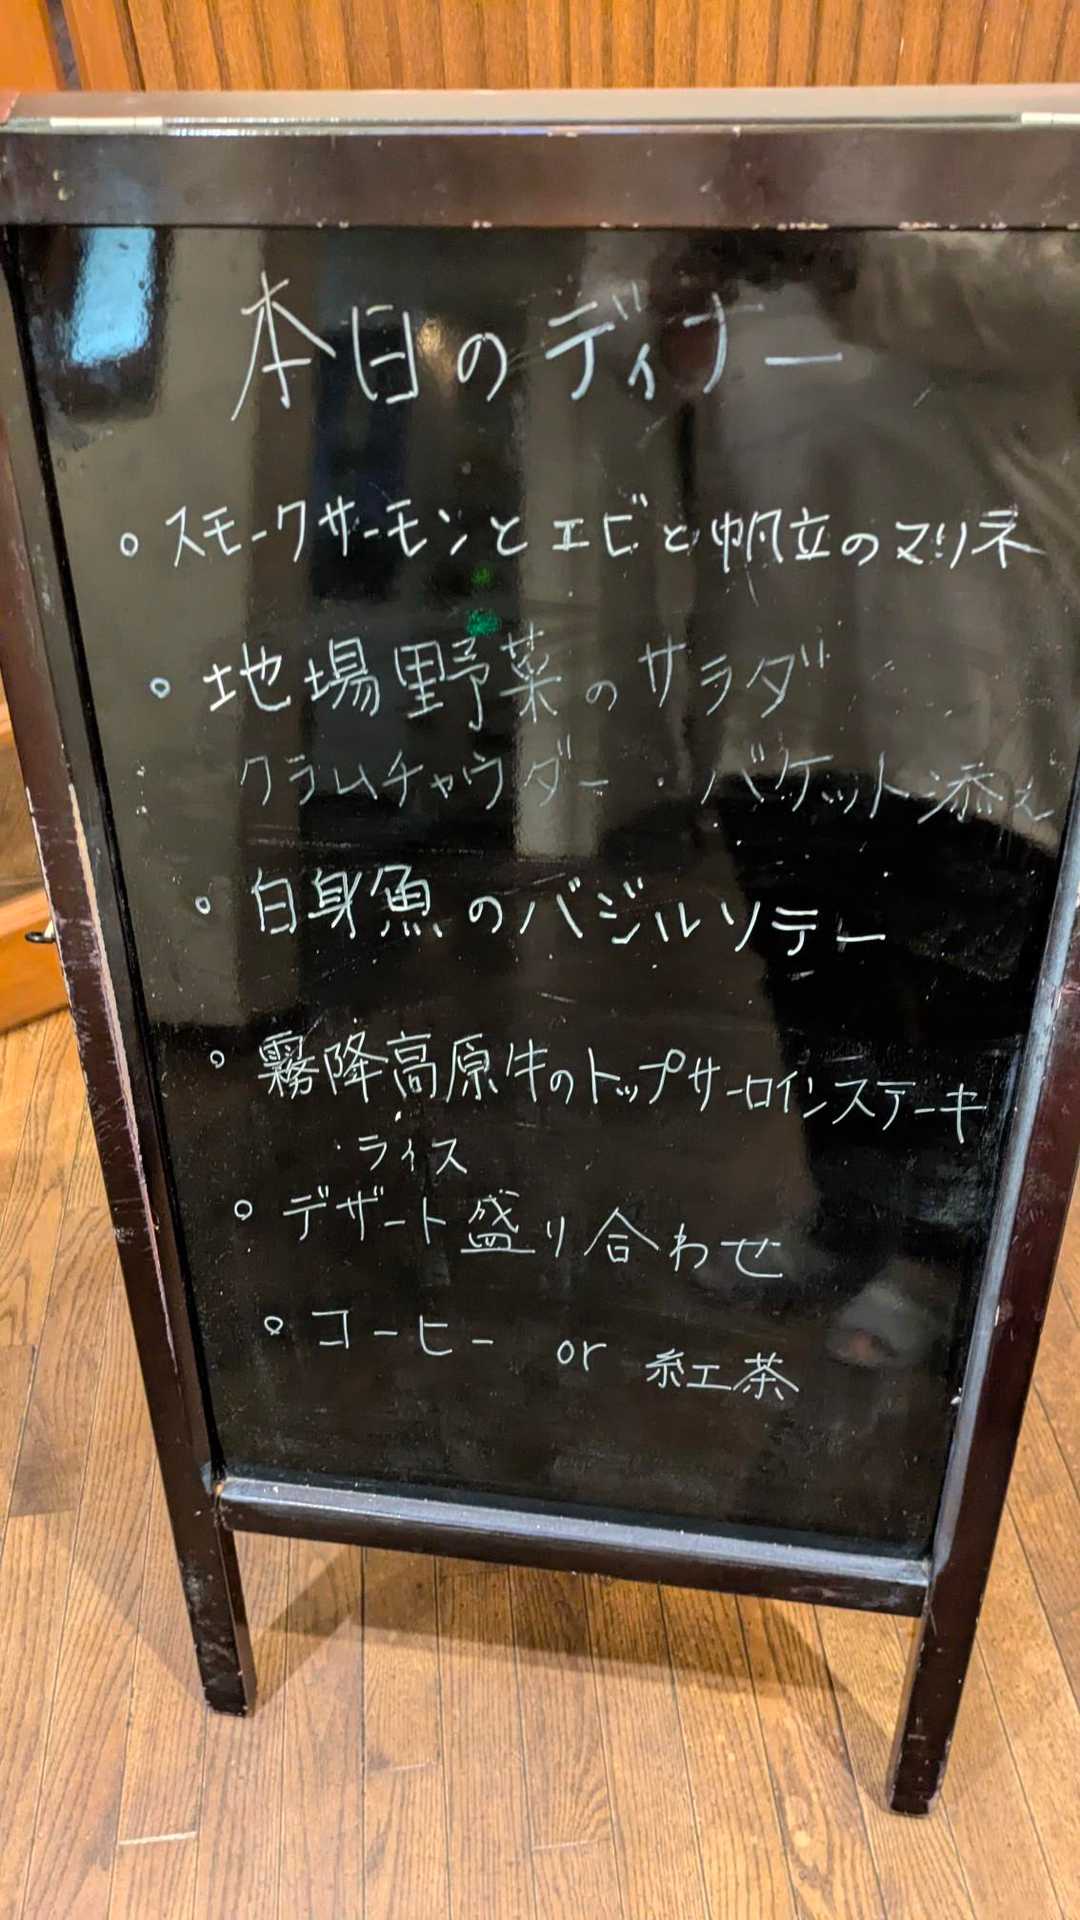 本日のディナー
。スモークサーモンとエビと帆立のマリネ
。地場野菜のサラダ
クラムチャウダー・バケット添え
。白身魚のバジルソテー
。霧降高原牛のトップサーロインステーキ
・ライス
。デザート盛り合わせ
。コーヒー or 紅茶